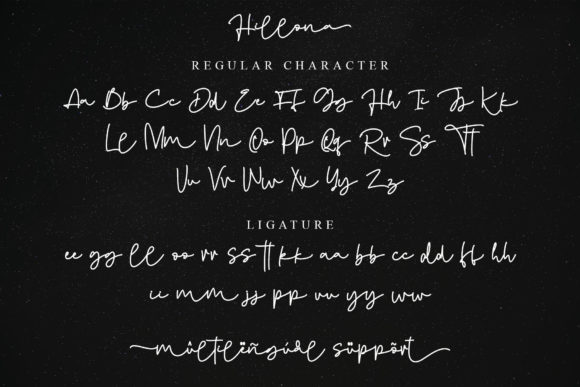 Hillona
REGULAR CHARACTER
Aa Bb Cc Dd Ee Ff Gg Hh Ii Jj Kk
Ll Mm Nn Oo Pp Qq Rr Ss Tt
Uu Vv Ww Xx Yy Zz
LIGATURE
ee gg ll oo rr ss tt kk aa bb cc dd ff hh
ii mm jj pp uu yy ww
můltilëñgúãl süppõrt